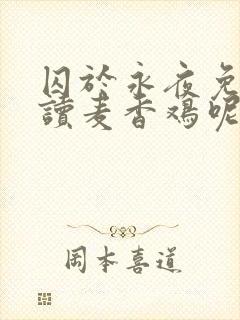 囚於永夜免
讀麦香鸡呢
岡本喜道